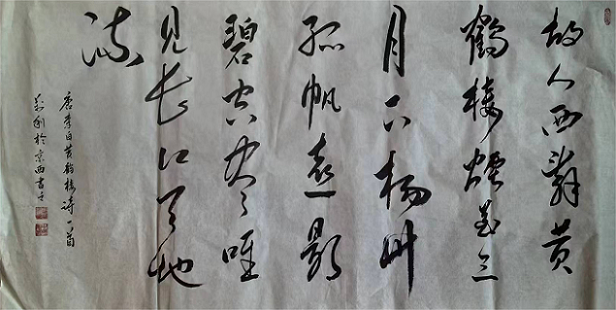 故人西辞黄
鹤楼烟花三
月下扬州
孤帆远影
碧空尽唯
见长江天地
流
唐李白黄鹤楼诗一首
于京西